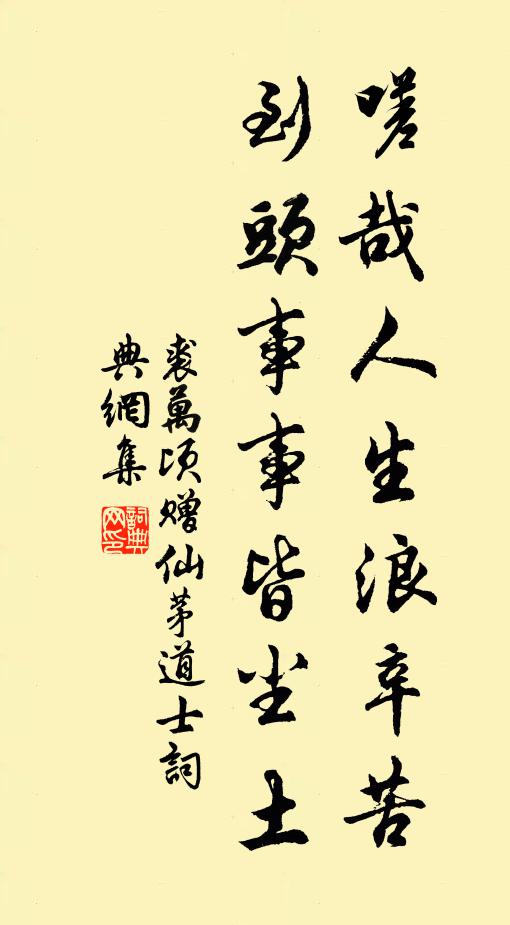 嗟哉人生浪辛苦
到頭事事皆尘土
裘萬頃贈仙茅道士詞
典網集
詞典
网印